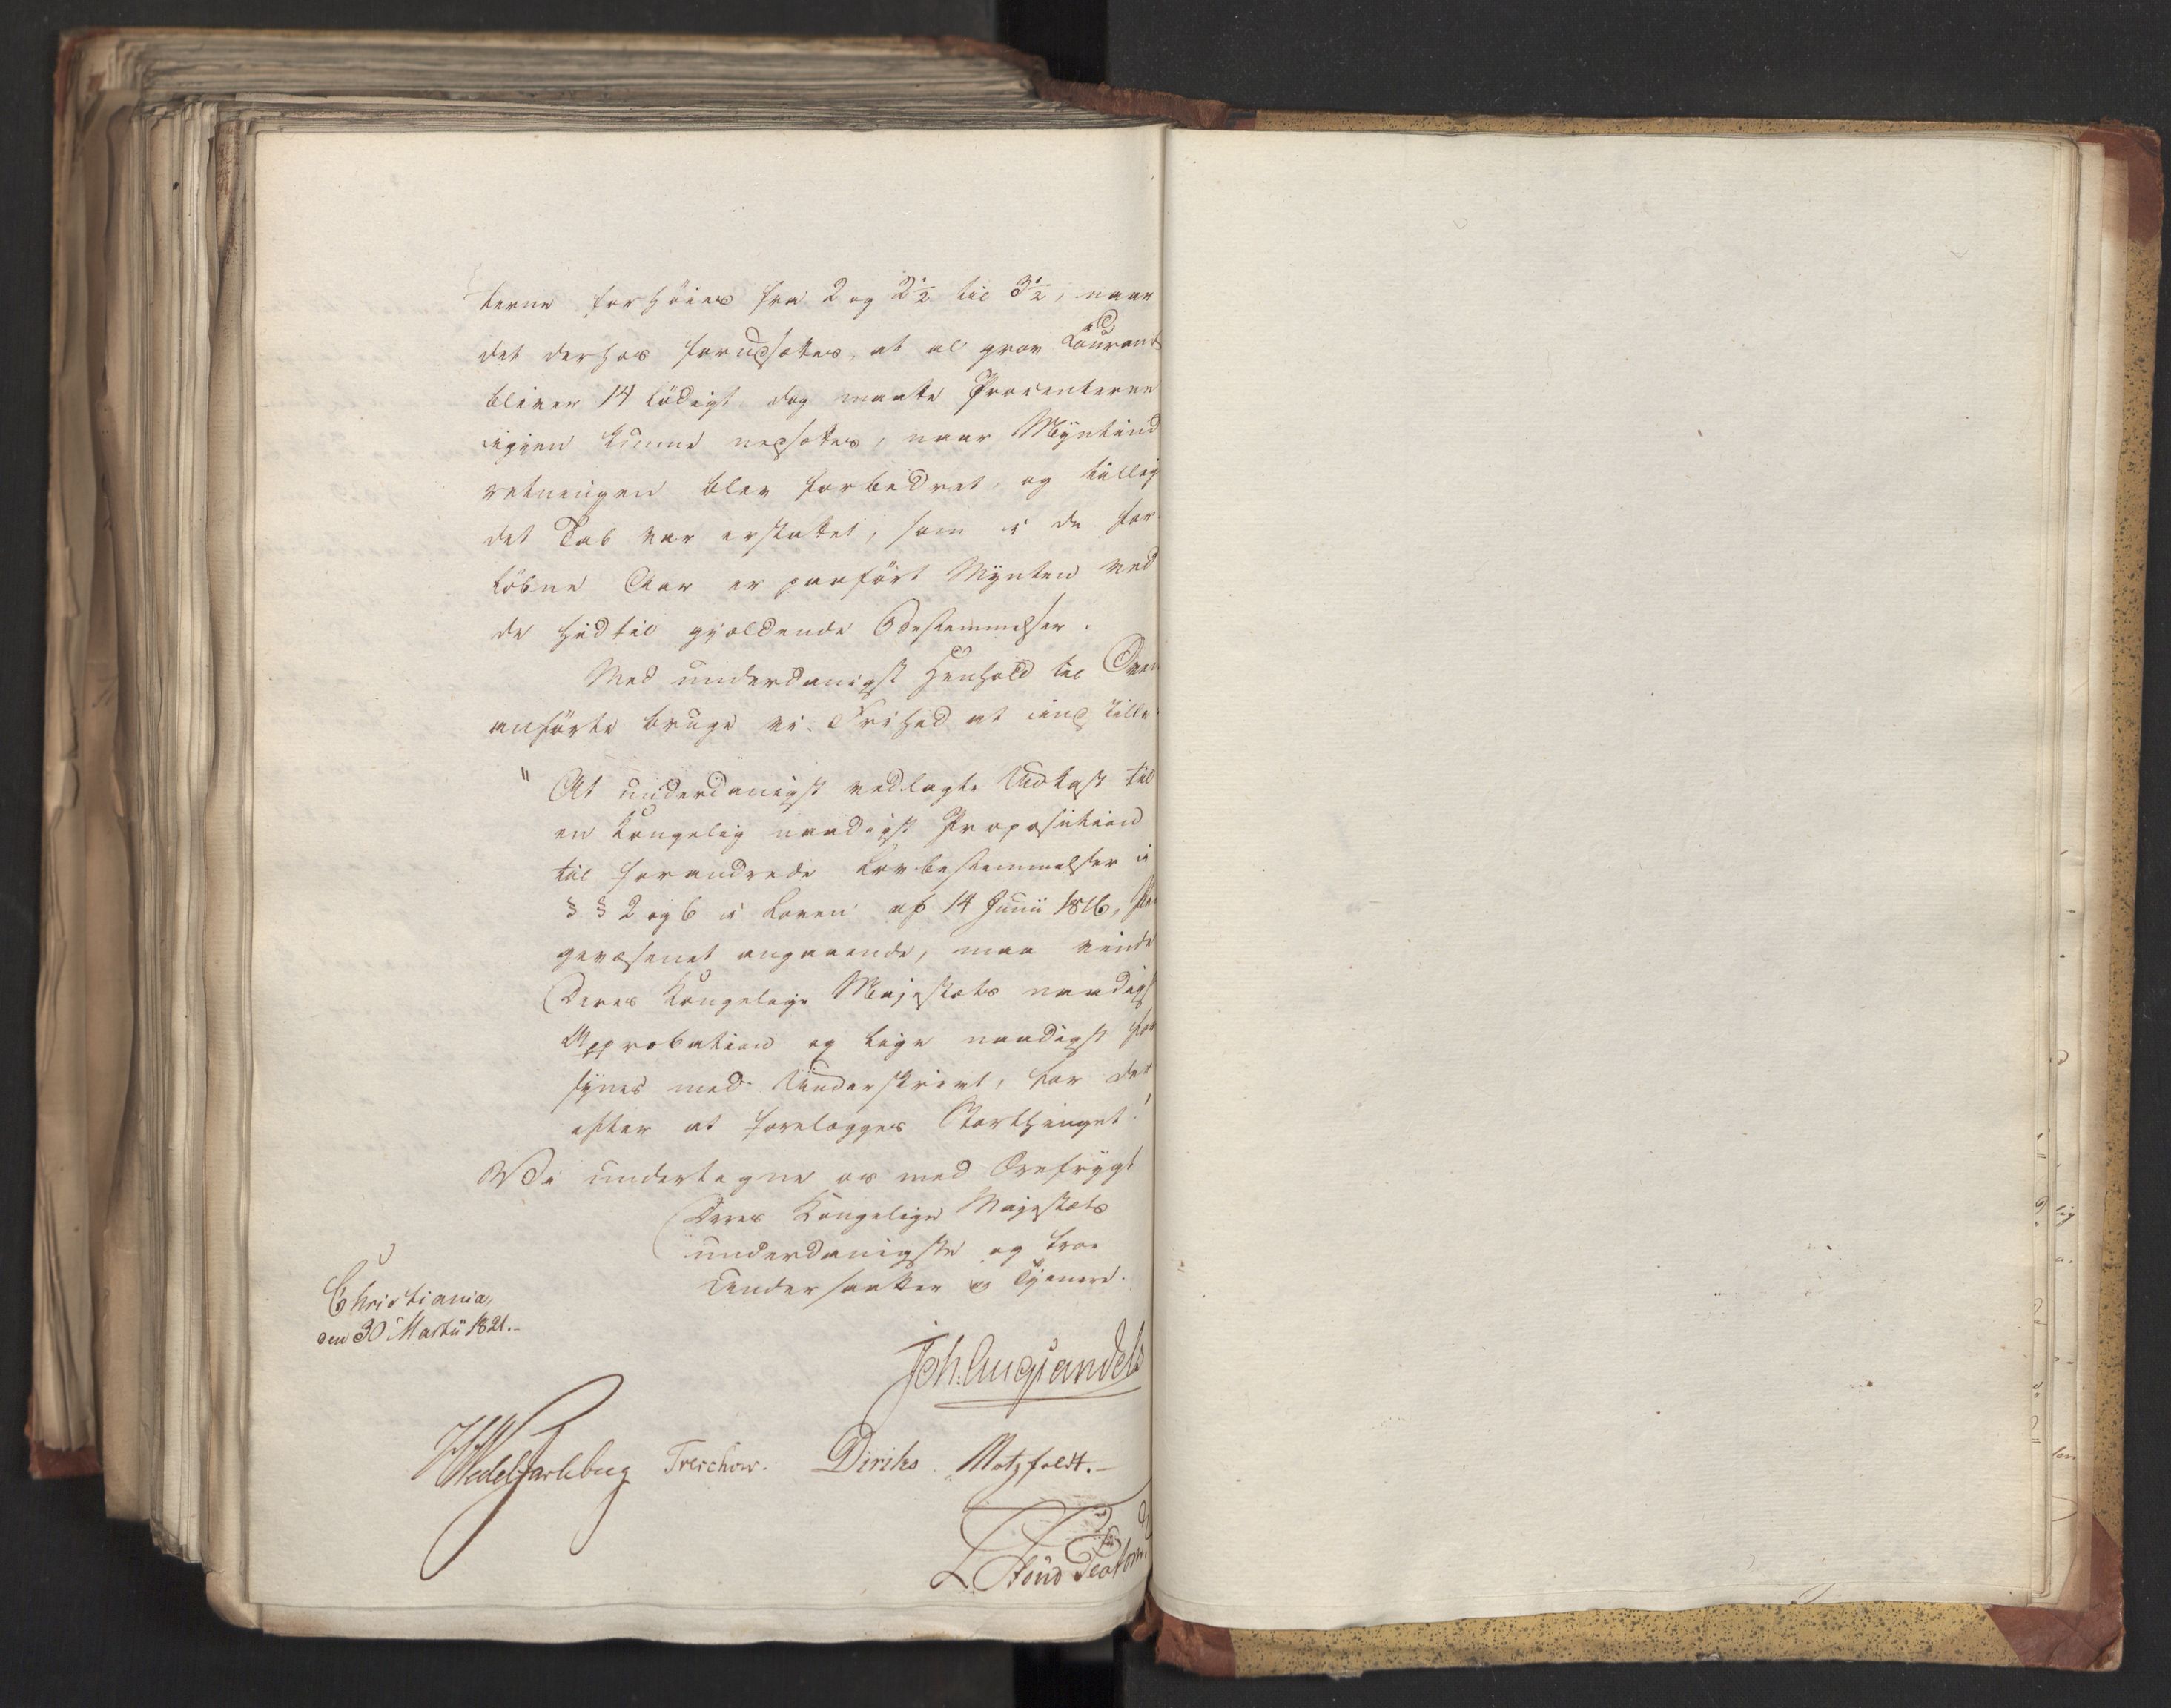 terne forhöies fra 2 og 2½ til 3½, naar
det derhos forudsættes, at al grov Courant
bliver 14 lödigt dog maatte Procenterne
igjen kunne nedsættes, naar Myntind
retningen blev forbedret, og tillige
det Tab var erstattet, som i de for
löbne Aar er paaført Mynten ved
de hidtil gjældende Bestemmelser.
Med underdanigst Henhold til Oven
anførte bruge vi Frihed at indstille:
"At underdanigst vedlagte Udkast til
en Kongelig naadigst Proposition
til forandrede Lovbestemmelser i
§ § 2 og 6 i Loven af 14 Junii 1816,
gevæsenet angaaende, maa vinde
Deres Kongelige Majestæts naadigst
Approbation og lige naadigst for
synes med Underskrivt, for der
efter at forelægges Storthinget!
Vi undertegne os med Ærefrygt
Deres Kongelige Majestæts
underdanigste og troe
Undersaatter og Tjenere.
Christiania,
den 30 Martii 1821.-
Joh. Aug Sandels
HWedel Jarlsberg Treschow. Diriks Motzfeldt.-